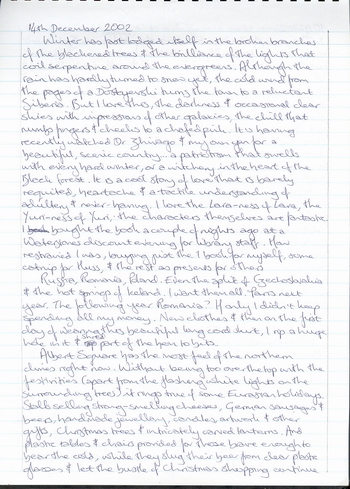 14th December 2002
Winter has just lodged itself in the broken branches
of the blackened trees & the brilliance of the lights that
coil serpentine around the evergreens. Although the
rain has hardly turned to snow yet, the cold wind from
the pages of a Dostoyevski turns the town to a reluctant
Siberia. But I love this, the darkness & occasional clear
skies with impressions of other galaxies, the chill that
numbs fingers & cheeks to a chafed pink. It is having
recently watched Dr Zhivago & my own yen for a
beautiful, scenic country
with every hard winter, or a witchery in the heart of the
Black forest. It is a cool story of love that is barely
requited, heartache & a tactile understanding of
adultery & never-having. I love the Lara-ness of Lara, the
Yuri-ness of Yuri, the characters themselves are fantastic.
I bought the book a couple of nights ago at a
Waterstones discount evening for library staff. How
restrained I was, buying just the 1 book for myself, some
catnip for Huss, & the rest as presents for others.
Russia, Romania, Poland. Even the split of Czechoslovakia
& the hot springs of Iceland. I want them all. Paris next
year. The following year Romania? If only I didn't keep
spending all my money. New clothes & then on the first
day of wearing this beautiful long coat out, I rip a huge
hole in it & shred part of the hem to bits.
Albert Square has the most feel of the northern
climes right now. Without being too over the top with the
festivities (apart from the flashing white lights on the
surrounding trees) it rings true of some Eurasian holidays.
Stalls selling strong-smelling cheeses, German sausages &
beers, handmade jewellery, candles, artwork & other
gifts, Christmas trees & intricately carved lanterns. And
plastic tables & chairs provided for those brave enough to
bear the cold, while they slug their beer from clear plastic
glasses & let the bustle of Christmas shopping continue